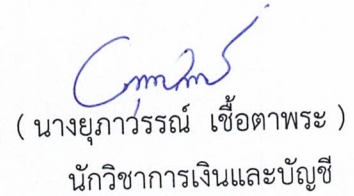 ( นางยุภาวรรณ์ เชื้อตาพระ )
นักวิชาการเงินและบัญชี